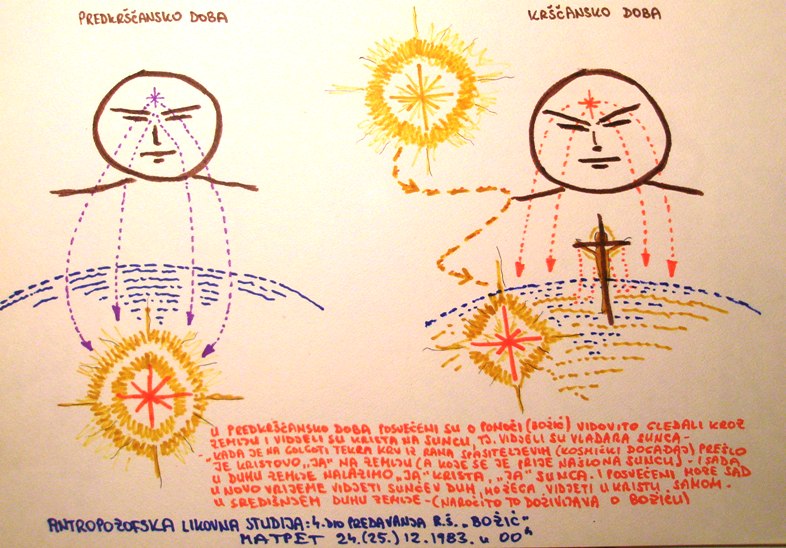 PREDKRŠČANSKO DOBA
KRŠČANSKO DOBA
U PREDKRŠČANSKO DOBA POSVEĆENI SU O PONOĆI (BOŽIĆ) VIDOVITO GLEDALI KROZ
ZEMLJU I VIDJELI SU KRISTA NA SUNCU, TJ. VIDJELI SU VLADARA SUNCA-
KADA JE NA GOLGOTI TEKLA KRV IZ RANA SPASITELJEVIH (KOSMIČKI DOGAĐAJ) PREŠLO
JE KRISTOVO „JA" NA ZEMLJU (A KOJE SE JE PRIJE NAŠLO NA SUNCU) - I SADA
U DUHU ZEMLJE NALAZIMO „JA" KRISTA, „JA" SUNCA. I POSVEĆENI MOŽE SAD
U NOVO VRIJEME VIDJETI SUNČEV DUH, VIDJETI U KRISTU, SAMOM
U SREDIŠNJEM DUHU ZEMLJE-(NAROČITO TO DOŽIVLJAVA O BOŽIĆU)
ANTROPOZOFSKA LIKOVNA STUDIJA: 4. DIO PREDAVANJA R.Š. „BOŽIĆ"
MATPET 24.(25.) 12.1983. u 00ʰ